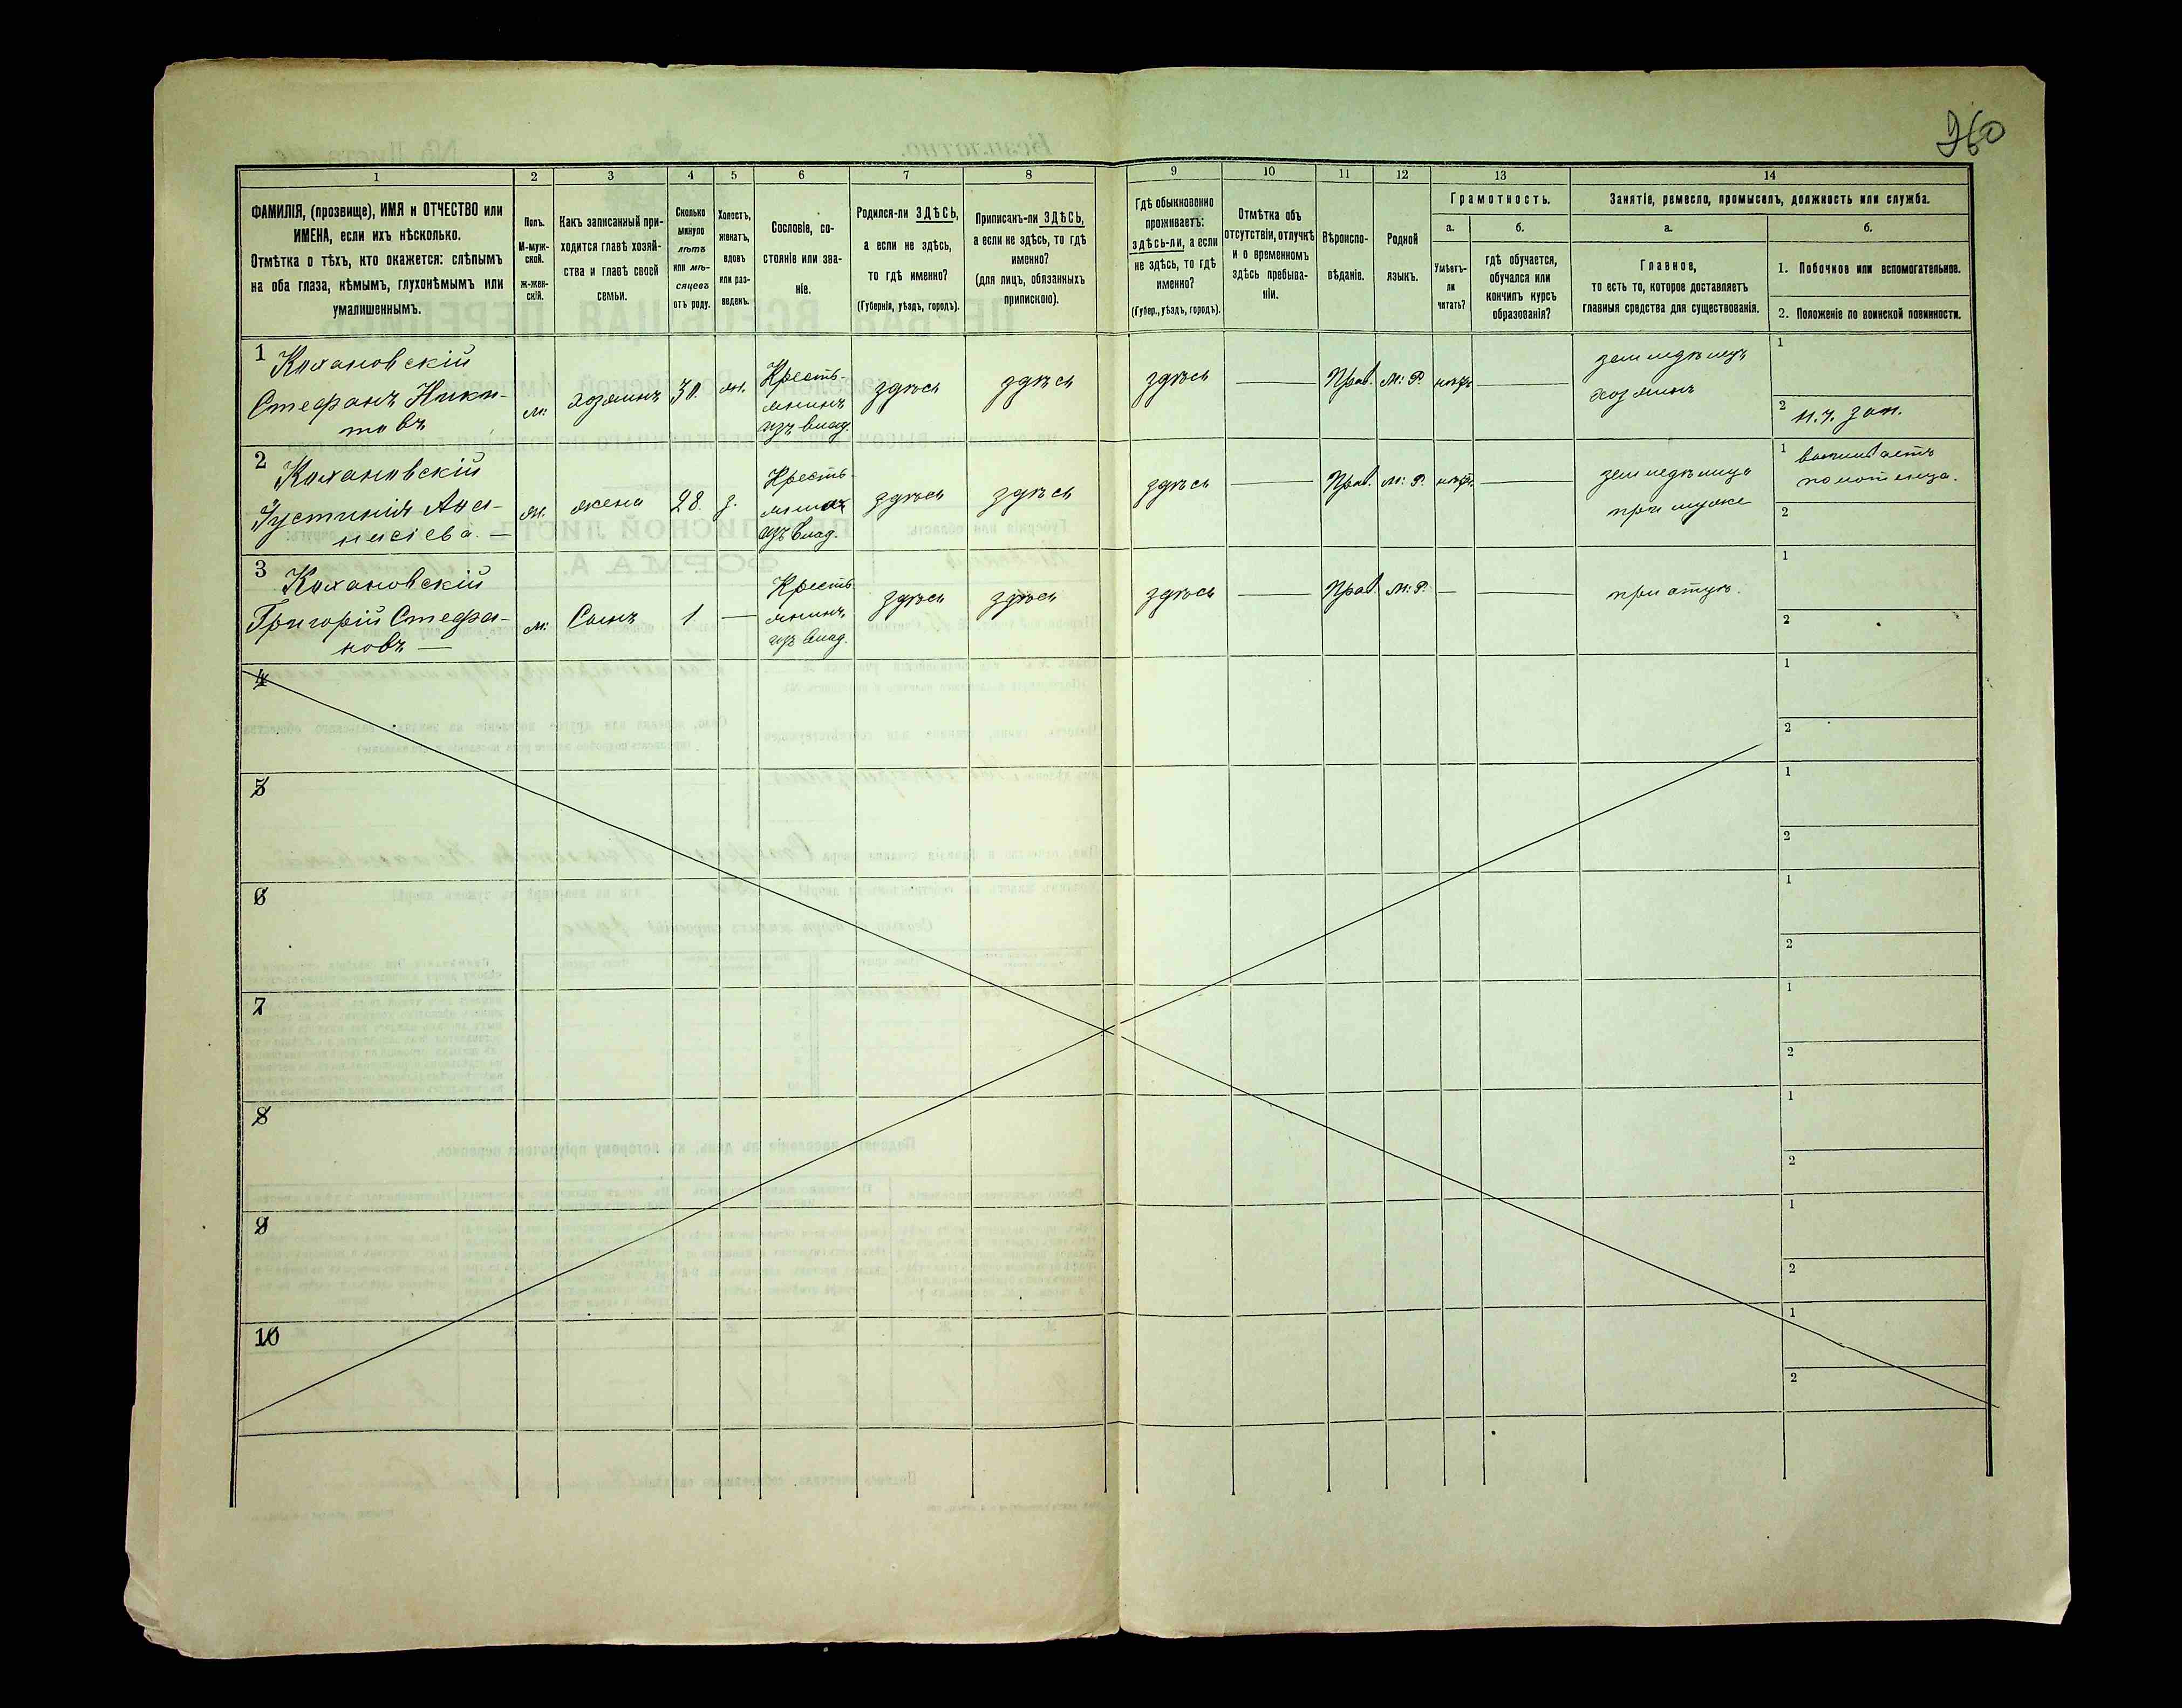 260
1
2
3
4
5
6
7
8
ФАМИЛІЯ, (прозвище), ИМЯ и ОТЧЕСТВО или
ИМЕНА, если ихъ нѣсколько.
Отмѣтка о тѣхъ, кто окажется: слѣпымъ
на оба глаза, нѣмымъ, глухонѣмымъ или
умалишеннымъ.
Полъ.
М-муж-
ской.
ж-жен-
скій.
Какъ записанный при-
ходится главѣ хозяй-
ства и главѣ своей
семьи.
Сколько
минуло
лѣтъ
или мѣ-
сяцевъ
отъ роду.
Холостъ,
женатъ,
вдовъ
или раз-
веденъ.
Сословіе, со-
стояніе или зва-
ніе.
Родился-ли ЗДѢСЬ,
а если не здѣсь,
то гдѣ именно?
(Губернія, уѣздъ, городъ).
Приписанъ-ли ЗДѢСЬ,
а если не здѣсь, то гдѣ
именно?
(для лицъ, обязанныхъ
припискою).
9
10
11
12
13
14
Гдѣ обыкновенно
проживаетъ:
здѣсь-ли, а если
не здѣсь, то гдѣ
именно?
(Губер., уѣздъ, городъ).
Отмѣтка объ
отсутствіи, отлучкѣ
и о временномъ
здѣсь пребыва-
ніи.
Вѣроиспо-
вѣданіе.
Родной
языкъ.
Грамотность.
а.
б.
Умѣетъ-
ли
читать?
гдѣ обучается,
обучался или
кончилъ курсъ
образованія?
Занятіе, ремесло, промыселъ, должность или служба.
а.
б.
Главное,
то есть то, которое доставляетъ
главныя средства для существованія.
1. Побочное или вспомогательное.
2. Положеніе по воинской повинности.
1
Кохановскій
Стефанъ Ники-
товъ
м:
хозяинъ
30.
ж.
Кресть-
янинъ
изъ влад.
здѣсь
здѣсь
здѣсь
Прав.
м: Р.
нѣтъ
земледѣлецъ
хозяинъ
1
2
н. ч. зап.
2
Кохановскій
Устинія Афа-
насіева.
ж.
жена
28.
з.
Кресть-
изъ влад.
здѣсь
здѣсь
здѣсь
Прав.
м: Р.
нѣтъ
земледѣлица
при мужѣ
1
полотенца.
2
3
Кохановскій
Григорій Стефа-
новъ
м:
Сынъ
1
Кресть-
янинъ
изъ влад.
здѣсь
здѣсь
здѣсь
Прав.
м: Р.
при отцѣ.
1
2
4
1
2
5
1
2
6
1
2
7
1
2
8
1
2
9
1
2
10
1
2